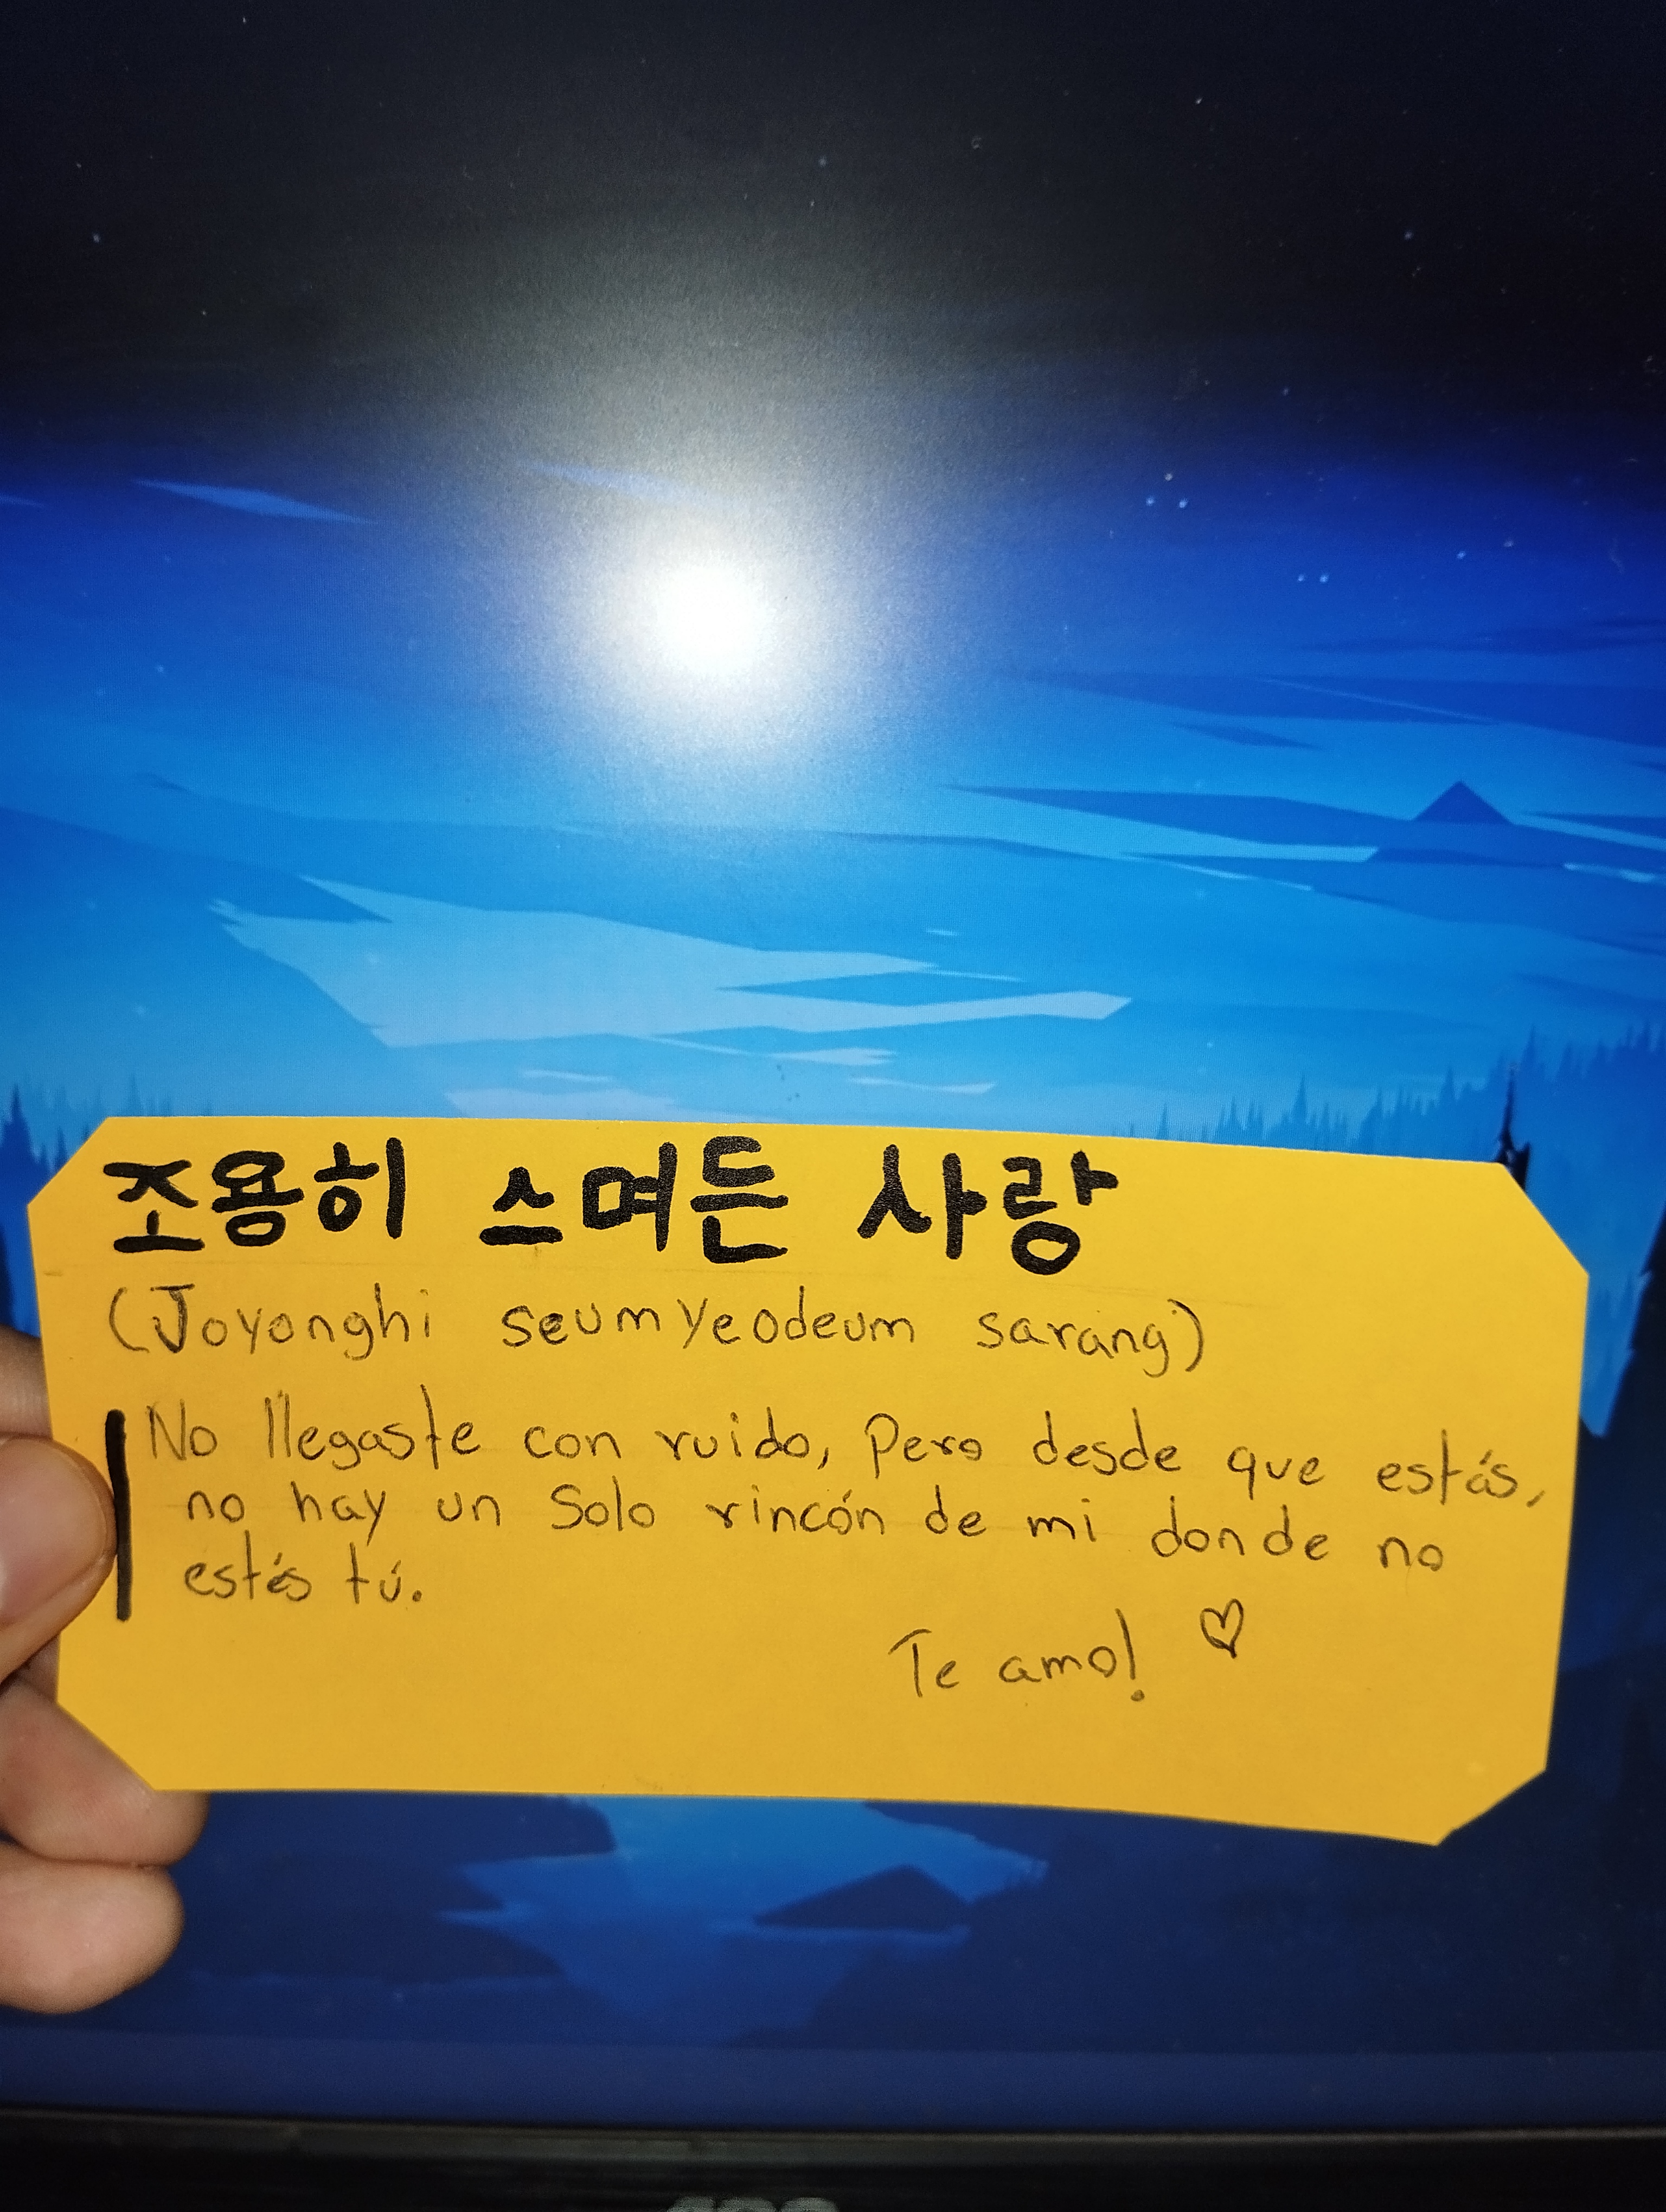 조용히 스며든 사랑
(Joyonghi seumyeodeum sarang)
No llegaste con ruido, Pero desde que estás,
no hay un Solo rincón de mi donde no
estés tú.
Te amo! ♡